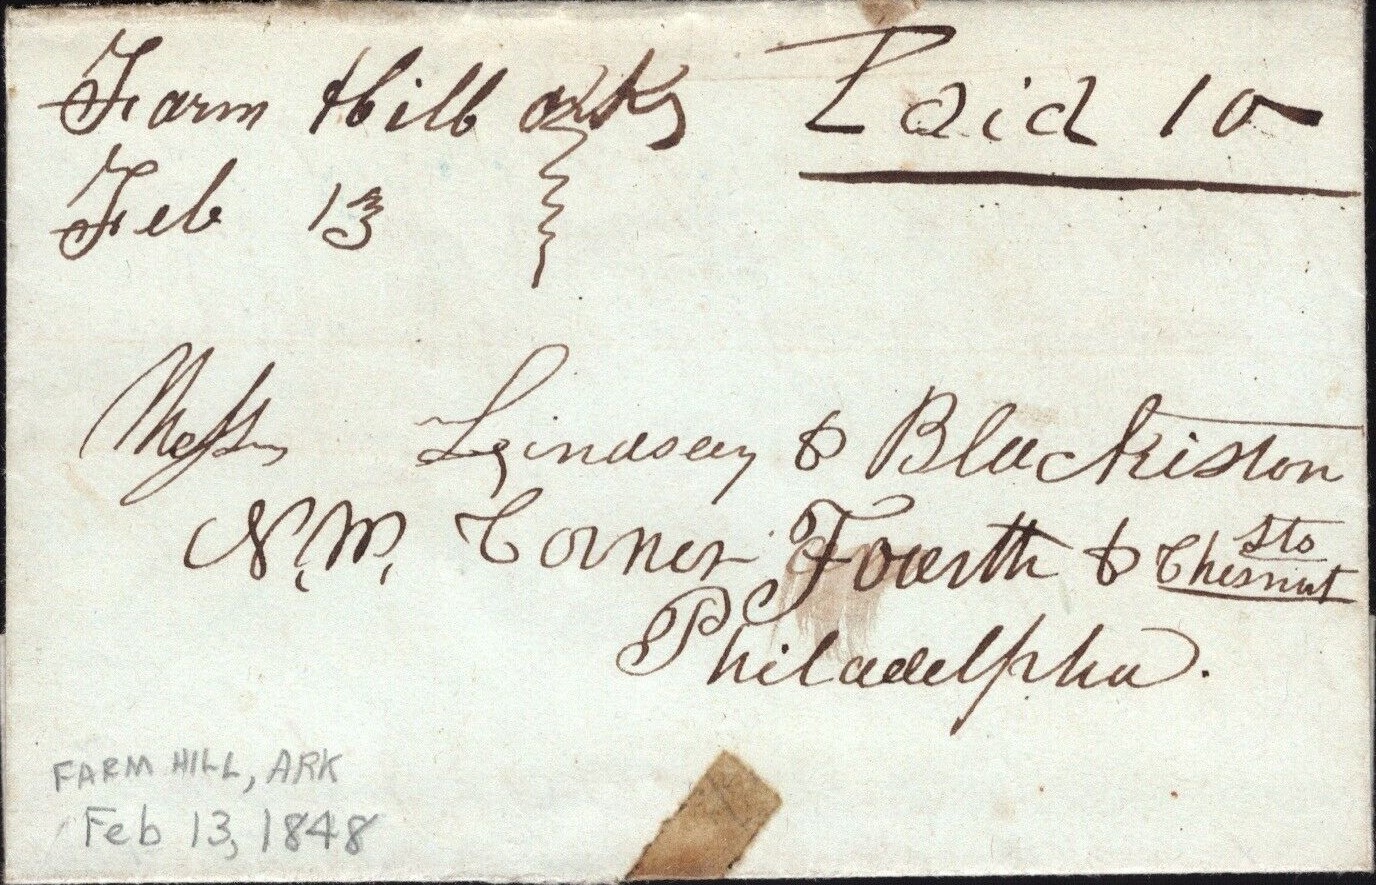 Farm Hill arks Paid 10
Feb 13
Messrs Lyindsay & Blackiston
N. W. Corner Fourth & Chesnut Sts
Philadelpha.
FARM HILL, ARK
Feb 13, 1848